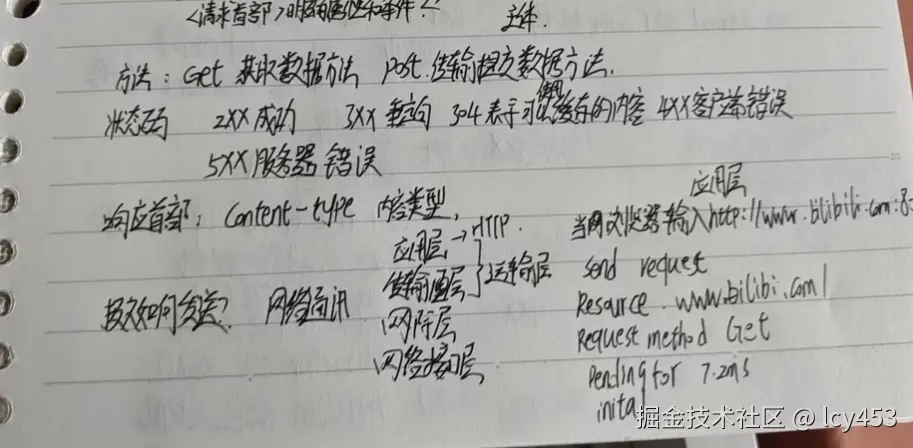 <请求首部>
主体.
方法: Get 获取数据方法 Post.传输提交数据方法.
状态码 2XX 成功 3XX 重定向 304 表示可以使用缓存的内容 4XX 客户端错误
5XX 服务器错误
响应首部: Content-type 内容类型,
应用层 → HTTP.
传输层 } 运输层
报文如何发送? 网络通讯
网际层
网络接口层
应用层
当网浏览器输入http://www.bilibili.com:8
Send request
Resource . www.bilibi.com/
Request method Get
Pending for 7.2ms
inita
掘金技术社区 @ lcy453